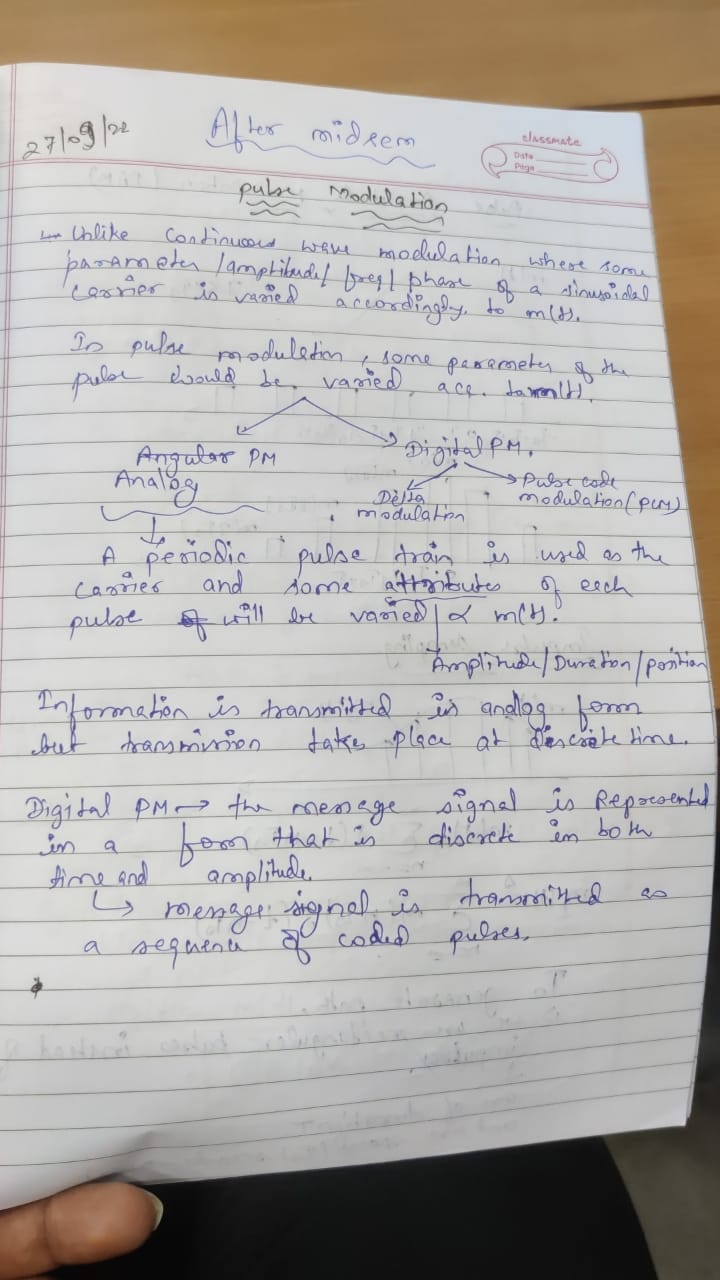 27/09/22
After midsem
classmate
Date
Page
pulse Modulation
Unlike continuous wave modulation where some
parameter /amplitude/ freq/ phase of a sinusoidal
carrier is varied accordingly to m(t).
In pulse modulation, some parameter of the
pulse would be varied acc. to m(t).
Angular PM
Analog
Digital PM.
Delta
modulation
Pulse code
modulation (PCM)
A periodic pulse train is used as the
carrier and some attributes of each
pulse will be varied ∝ m(t).
Amplitude/Duration/position
Information is transmitted in analog form
but transmission takes place at discrete time.
Digital PM → the message signal is Represented
in a form that is discrete in both
time and amplitude.
↳ message signal is transmitted as
a sequence of coded pulses.